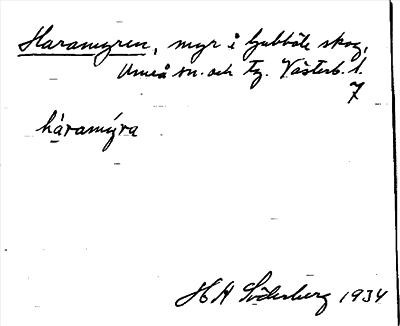 Haramyren, myr i Ljubböle skog,
Umeå sn. och tg. Västerb. l.
7
håramýra
H A Söderberg 1934